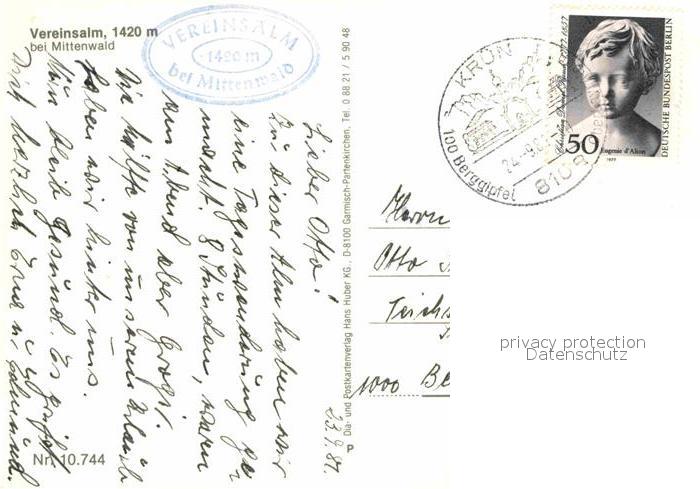 Vereinsalm, 1420 m
bei Mittenwald
VEREINSALM
1420 m
bei Mittenwald
Lieber Otto!
Zu dieser Alm haben wir
eine Tageswanderung ge-
macht. 8 Stunden, waren
am Abend aber groggi.
Die Hälfte von unserem Urlaub
haben wir hinter uns.
bleibe gesund. Es grüßt
Dich herzlich
Nr. 10.744
23.9.81.
Dia- und Postkartenverlag Hans Huber KG., D-8100 Garmisch-Partenkirchen, Tel. 0 88 21 / 5 90 48
KRÜN
100 Berggipfel
8108
50
Eugenie d'Alton
1977
DEUTSCHE BUNDESPOST BERLIN
Herrn
Otto
Teichs
1000 Be
privacy protection
Datenschutz